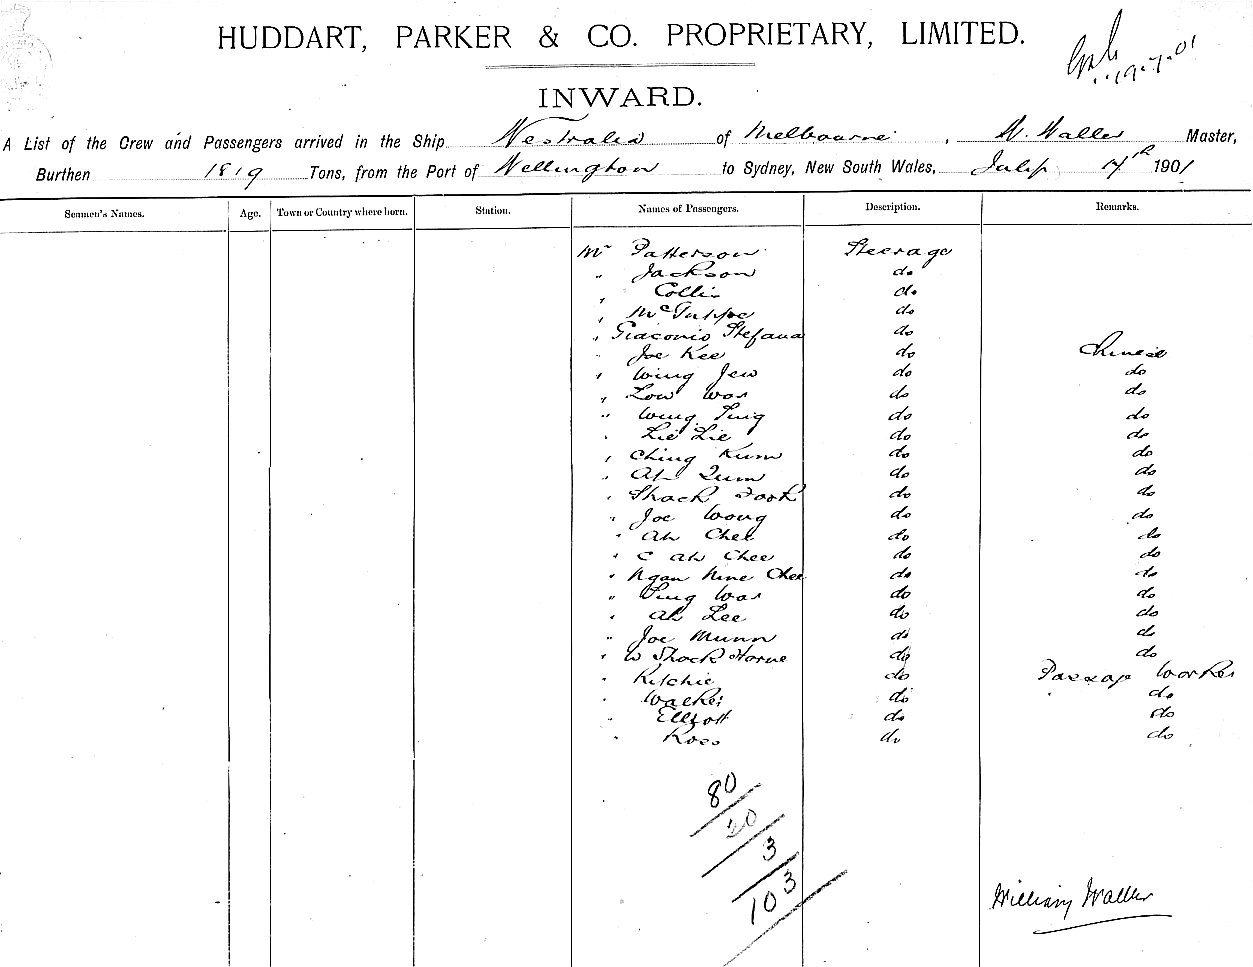 HUDDART, PARKER & CO. PROPRIETARY, LIMITED.
19.7.01
INWARD.
A List of the Crew and Passengers arrived in the Ship Westralia of Melbourne, W. Waller Master,
Burthen 1819 Tons, from the Port of Wellington to Sydney, New South Wales, July 17th 1901
Seamen's Names. Age. Town or Country where born. Station. Names of Passengers. Description. Remarks.
Mr Patterson Steerage
" Jackson do
" Collis do
" do
" Giaconio Stefana do
" Joe Kee do Chinese
" Wing Jew do do
" Low War do do
" Wing Ting do do
" Lie Lie do do
" Ching Kum do do
" Ah Qum do do
" Shack Fook do do
" Joe Wong do do
" Ah Chee do do
" C Ah Chee do do
" Ngan Nine Chee do do
" Ting War do do
" Ah Lee do do
" Joe Munn do do
" W Shock Horne do do
" Ritchie do Passage Worker
" Walker do " do
" Elliott do do
" Ross do do
80
20
3
103
William Waller